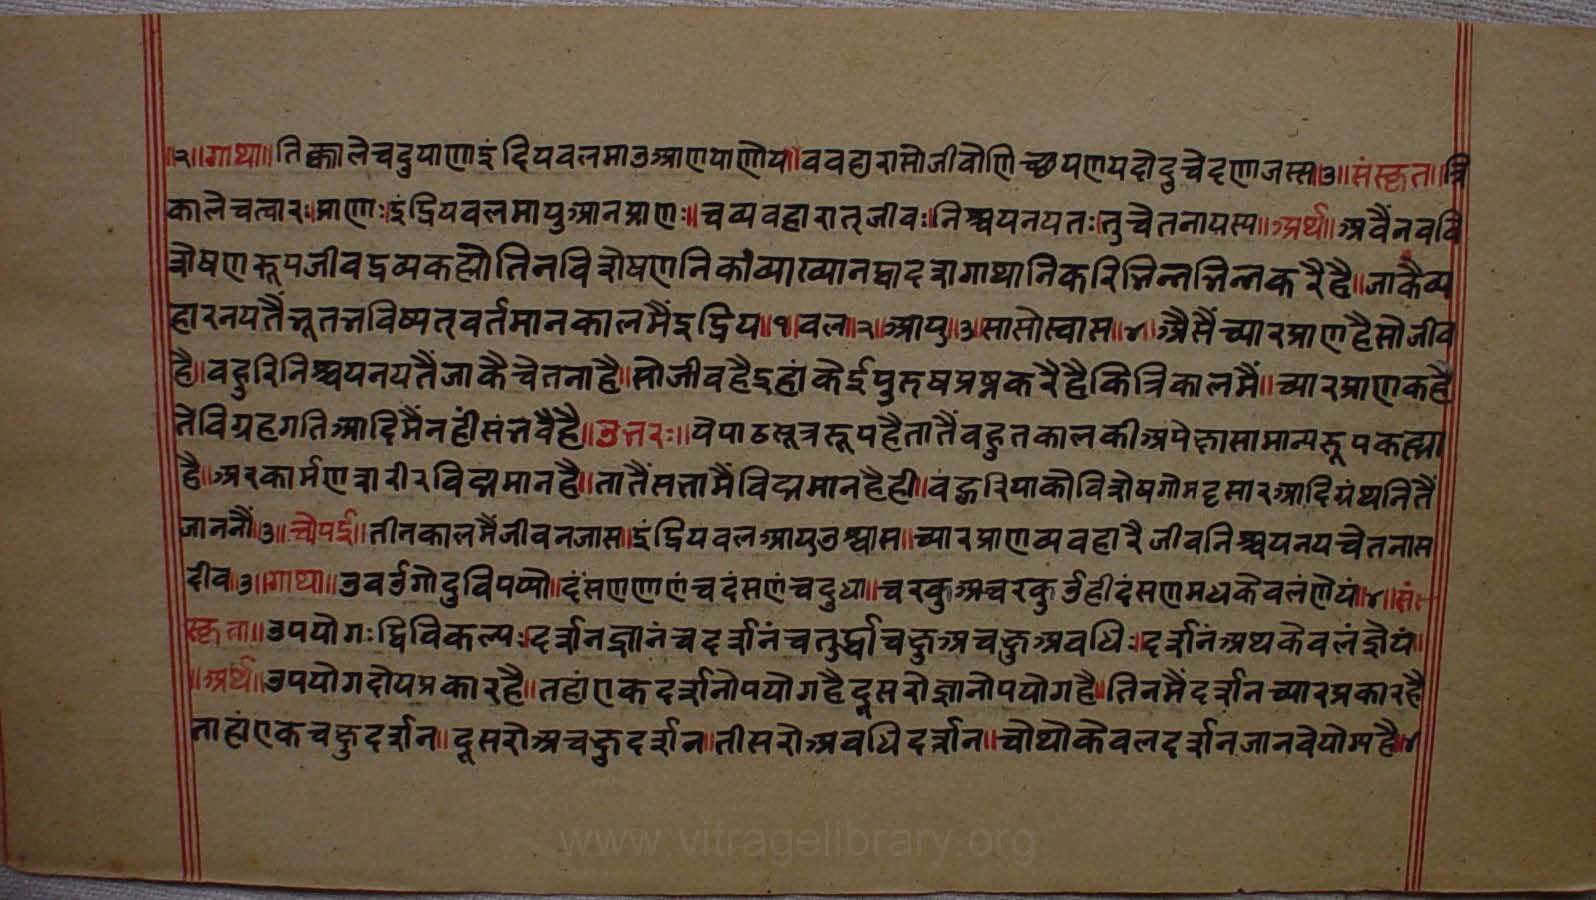 २॥गाथा॥तिक्कालेचदुपाणाइंदियवलमाउआणपाणोय॥ववहारासोजीवोणिच्छयणयदोदुचेदणाजस्स३॥संस्कृत॥त्रि
कालेचत्वारः॥प्राणाः॥इंद्रियवलमायुआनप्राणः॥चव्यवहारात्जीवः॥निश्चयनयतः॥तुचेतनायस्य॥अर्थ॥अवैंनववि
शेषणरूपजीवद्रव्यकह्योतिनविशेषणनिकोंव्याख्यानद्वादशगाथानिकरिभिन्नभिन्नकरैहै॥जाकैव्य
हारनयतैंभूतभविष्यत्वर्तमानकालमैंइद्रिय॥१॥वल॥२॥आयु॥३॥सासोस्वास॥४॥अैसैंच्यारप्राणहैसोजीव
है॥वहुरिनिश्चयनयतैंजाकैचेतनाहै॥सोजीवहैइहांकोईपुरुषप्रश्नकरैहैकित्रिकालमैं॥च्यारप्राणकहै
तेविग्रहगतिआदिमैंनहींसंभवैहै॥उत्तरः॥येपाठसूत्ररूपहैतातैंवहुतकालकीअपेक्षासामान्यरूपकह्या
है॥अरकार्मणशरीरविद्यमानहै॥तातैंसत्तामैंविद्यमानहैही॥वंहुरियाकोविशेषगोमट्टसारआदिग्रंथनितैं
जाननौं॥३॥चौपई॥तीनकालमैंजीवनजास॥इंद्रियवलआयुउश्वास॥च्यारप्राणव्यवहारैजीवनिश्चयनयचेतनास
दीव॥३॥गाथा॥उवर्उगोदुविपप्पो॥दंसणणाणंचदंसणंचदुधा॥चरकुअचरकुर्उहीदंसणमधकेवलंणेयं॥४॥सं
स्कृता॥उपयोगःद्विविकल्पः॥दर्शनज्ञानंचदर्शनंचतुर्द्धाचक्षुअचक्षुअवधिः॥दर्शनंअथकेवलंज्ञेयं॥
॥अर्थ॥उपयोगदोयप्रकारहै॥तहांएकदर्शनोपयोगहैदूसरोज्ञानोपयोगहै॥तिनमैंदर्शनच्यारप्रकारहै
ताहांएकचक्षुदर्शन॥दूसरोअचक्षुदर्शन॥तीसरोअवधिदर्शन॥चोथोकेवलदर्शनजानवेयोग्यहै॥४
www.vitragelibrary.org